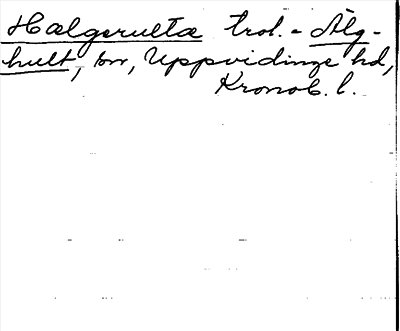 Hælgerueltæ trol. = Älg-
hult, sn, Uppvidinge hd,
Kronob. l.